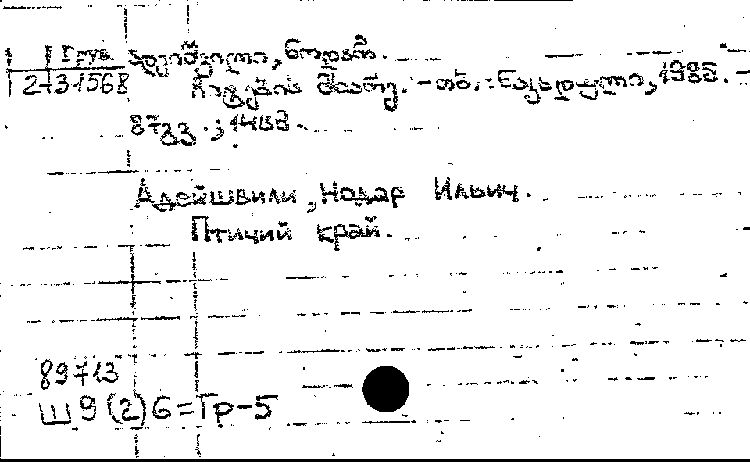 Груз. ადეიშვილი, ნოდარ.
2-31568 ჩიტების მხარე. - თბ.: ნაკადული, 1985. -
87 გვ.; 14სმ.
Адейшвили, Нодар Ильич.
Птичий край.
89713
Ш9(2)6=Гр-5